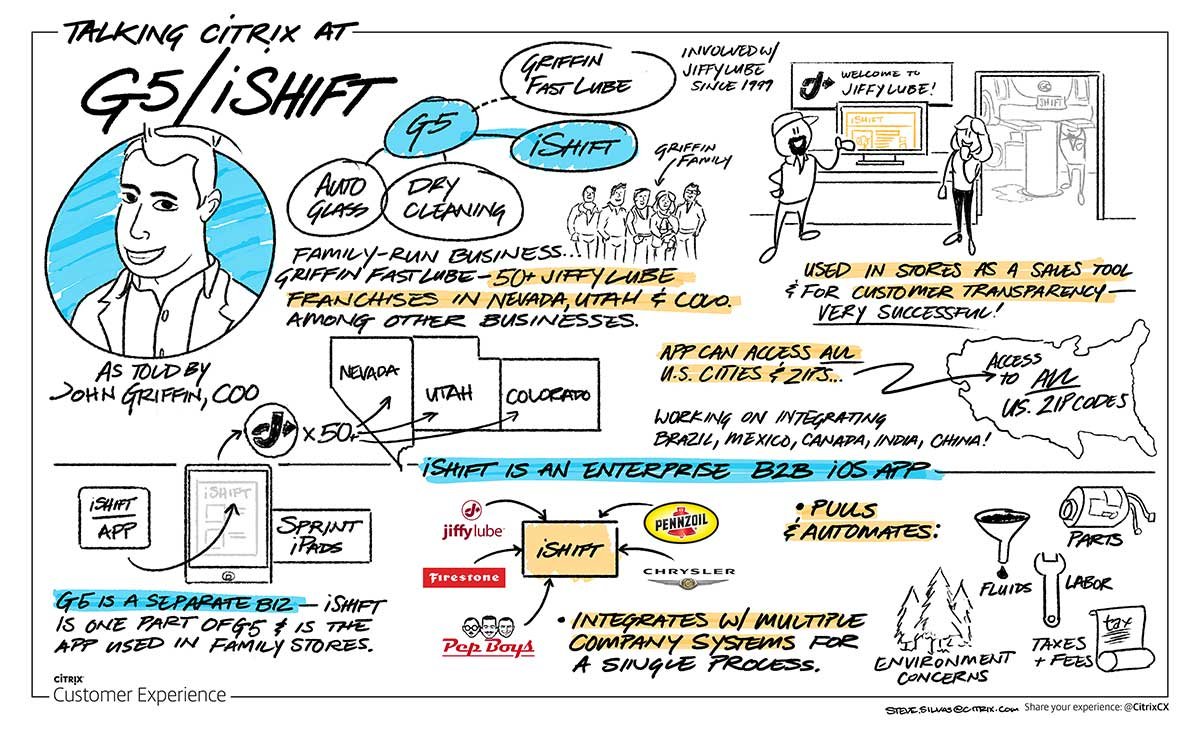 TALKING CITRIX AT
G5/iSHIFT
GRIFFIN
FAST LUBE
INVOLVED W/
JIFFY LUBE
SINCE 1997
G5
iSHIFT
AUTO
GLASS
DRY
CLEANING
GRIFFIN
FAMILY
WELCOME TO
JIFFY LUBE!
iSHIFT
SHIFT
FAMILY-RUN BUSINESS...
GRIFFIN FAST LUBE - 50+ JIFFY LUBE
FRANCHISES IN NEVADA, UTAH & COLO.
AMONG OTHER BUSINESSES.
USED IN STORES AS A SALES TOOL
& FOR CUSTOMER TRANSPARENCY -
VERY SUCCESSFUL!
AS TOLD BY
JOHN GRIFFIN, COO
J X 50+
NEVADA
UTAH
COLORADO
APP CAN ACCESS ALL
U.S. CITIES & ZIPS...
ACCESS
TO ALL
US. ZIP CODES
WORKING ON INTEGRATING
BRAZIL, MEXICO, CANADA, INDIA, CHINA!
iSHIFT IS AN ENTERPRISE B2B iOS APP
iSHIFT
APP
iSHIFT
SPRINT
iPADS
G5 IS A SEPARATE BIZ - iSHIFT
IS ONE PART OF G5 & IS THE
APP USED IN FAMILY STORES.
jiffy lube
PENNZOIL
iSHIFT
Firestone
CHRYSLER
Pep Boys
• PULLS
& AUTOMATES:
FLUIDS
PARTS
LABOR
TAXES
+ FEES
tax
ENVIRONMENT
CONCERNS
• INTEGRATES W/ MULTIPLE
COMPANY SYSTEMS FOR
A SINGLE PROCESS.
CİTRIX
Customer Experience
STEVE.SILVAS@CITRIX.COM Share your experience: @CitrixCX